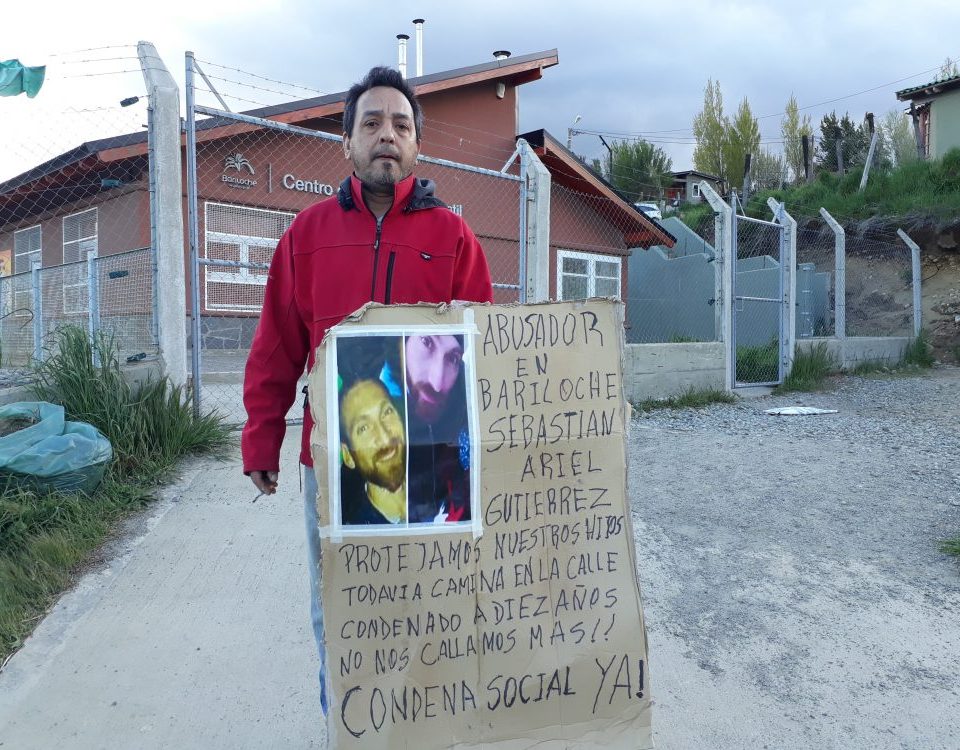 Bariloche
Centro
ABUSADOR
EN
BARILOCHE
SEBASTIAN
ARIEL
GUTIERREZ
PROTEJAMOS NUESTROS HIJOS
TODAVIA CAMINA EN LA CALLE
CONDENADO A DIEZ AÑOS
NO NOS CALLAMOS MAS!!
CONDENA SOCIAL YA!